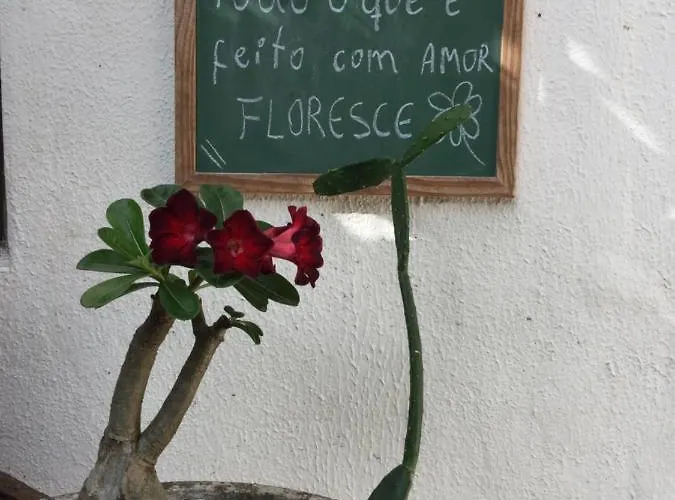 Tudo o que é
feito com AMOR
FLORESCE